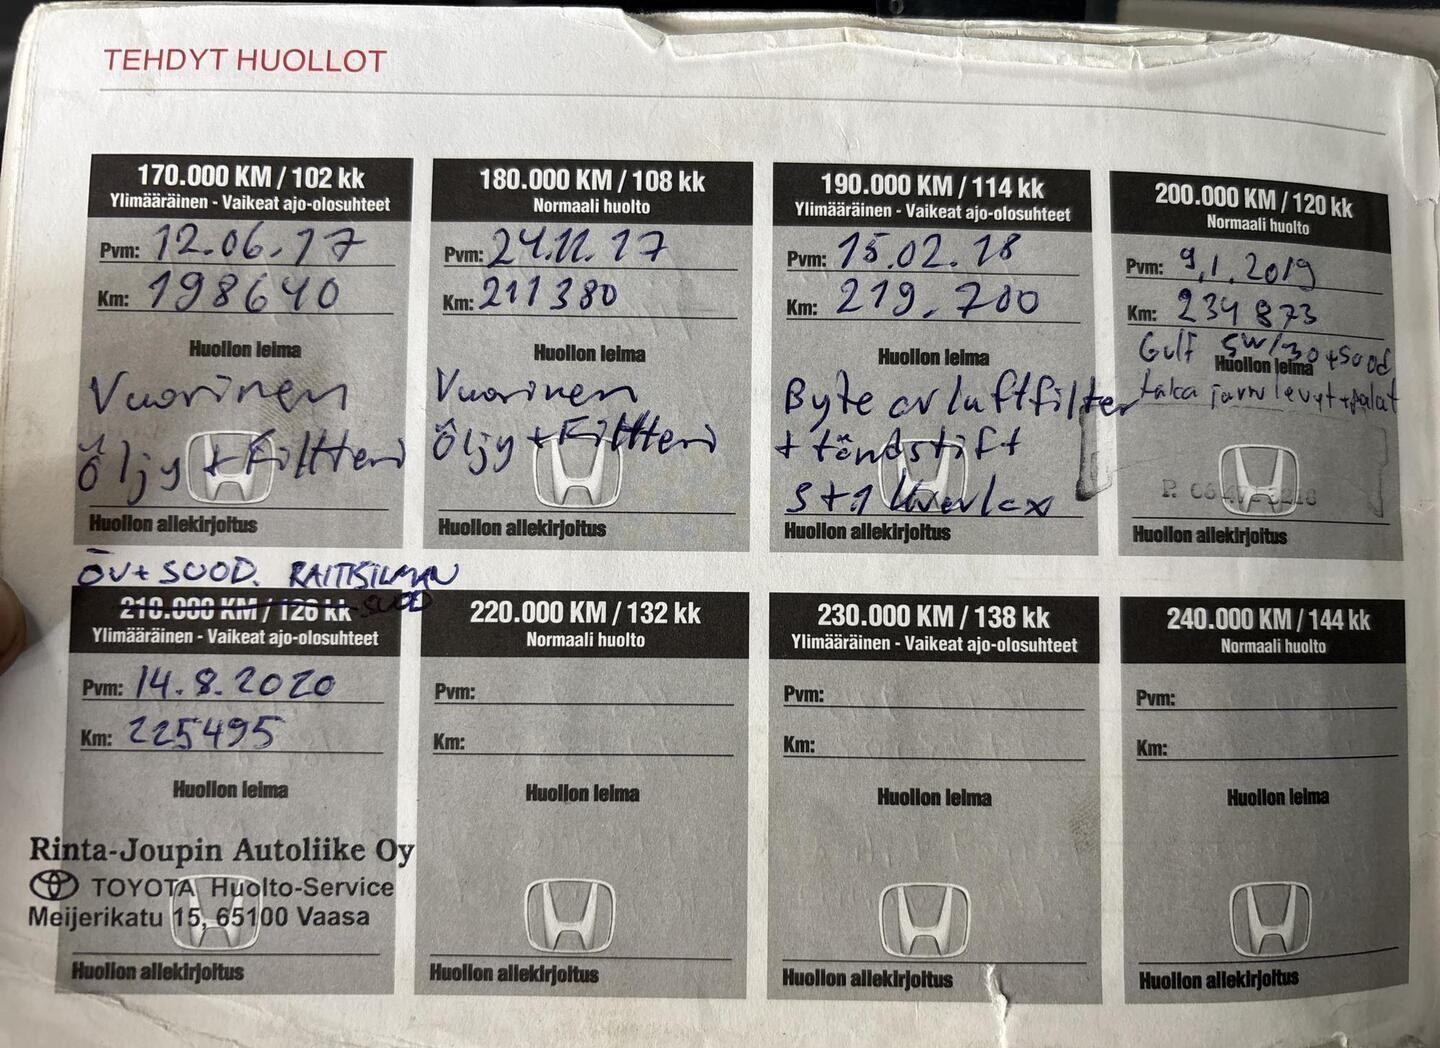 TEHDYT HUOLLOT
170.000 KM / 102 kk
Ylimääräinen - Vaikeat ajo-olosuhteet
Pvm: 12.06.17
Km: 198640
Huollon leima
Vuorinen
Öljy + Filtteri
Huollon allekirjoitus
180.000 KM / 108 kk
Normaali huolto
Pvm: 24.11.17
Km: 211380
Huollon leima
Vuorinen
Öljy + Filtteri
Huollon allekirjoitus
190.000 KM / 114 kk
Ylimääräinen - Vaikeat ajo-olosuhteet
Pvm: 15.02.18
Km: 219.700
Huollon leima
Byte av luftfilter
+ tändstift
3+1
Huollon allekirjoitus
200.000 KM / 120 kk
Normaali huolto
Pvm: 9.1.2019
Km: 234873
Gulf 5W/30 + Suod
Huollon leima
taka jarrulevyt + palat
Huollon allekirjoitus
ÖV + SUOD. RAITISILMAN
SUOD
210.000 KM / 126 kk
Ylimääräinen - Vaikeat ajo-olosuhteet
Pvm: 14.8.2020
Km: 225495
Huollon leima
Rinta-Joupin Autoliike Oy
TOYOTA Huolto-Service
Meijerikatu 15, 65100 Vaasa
Huollon allekirjoitus
220.000 KM / 132 kk
Normaali huolto
Pvm:
Km:
Huollon leima
Huollon allekirjoitus
230.000 KM / 138 kk
Ylimääräinen - Vaikeat ajo-olosuhteet
Pvm:
Km:
Huollon leima
Huollon allekirjoitus
240.000 KM / 144 kk
Normaali huolto
Pvm:
Km:
Huollon leima
Huollon allekirjoitus